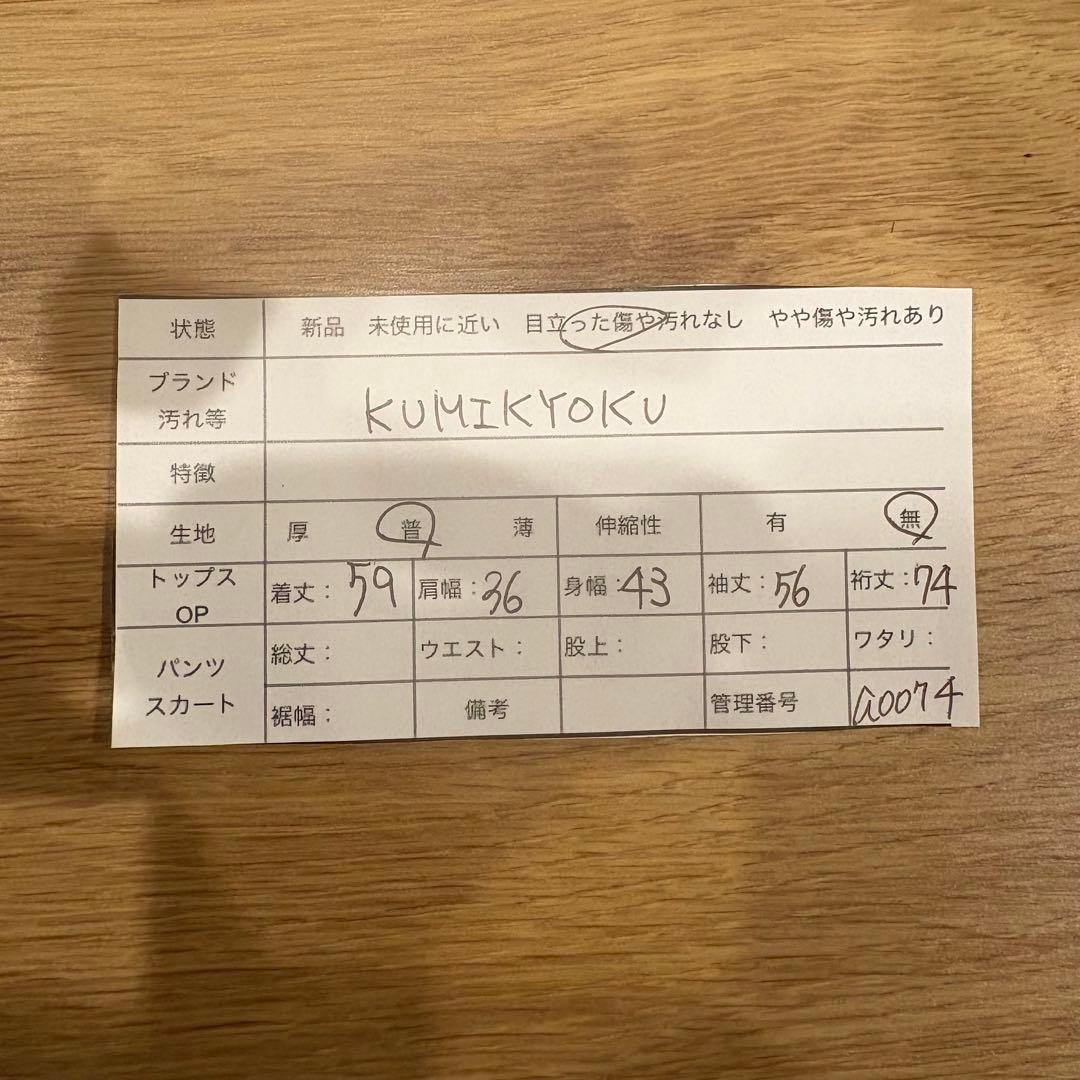 状態 新品 未使用に近い 目立った傷や汚れなし やや傷や汚れあり
ブランド
汚れ等 KUMIKYOKU
特徴
生地 厚 普 薄 伸縮性 有 無
トップス
OP 着丈：59 肩幅：36 身幅：43 袖丈：56 裄丈：74
パンツ
スカート 総丈： ウエスト： 股上： 股下： ワタリ：
裾幅： 備考 管理番号 a0074